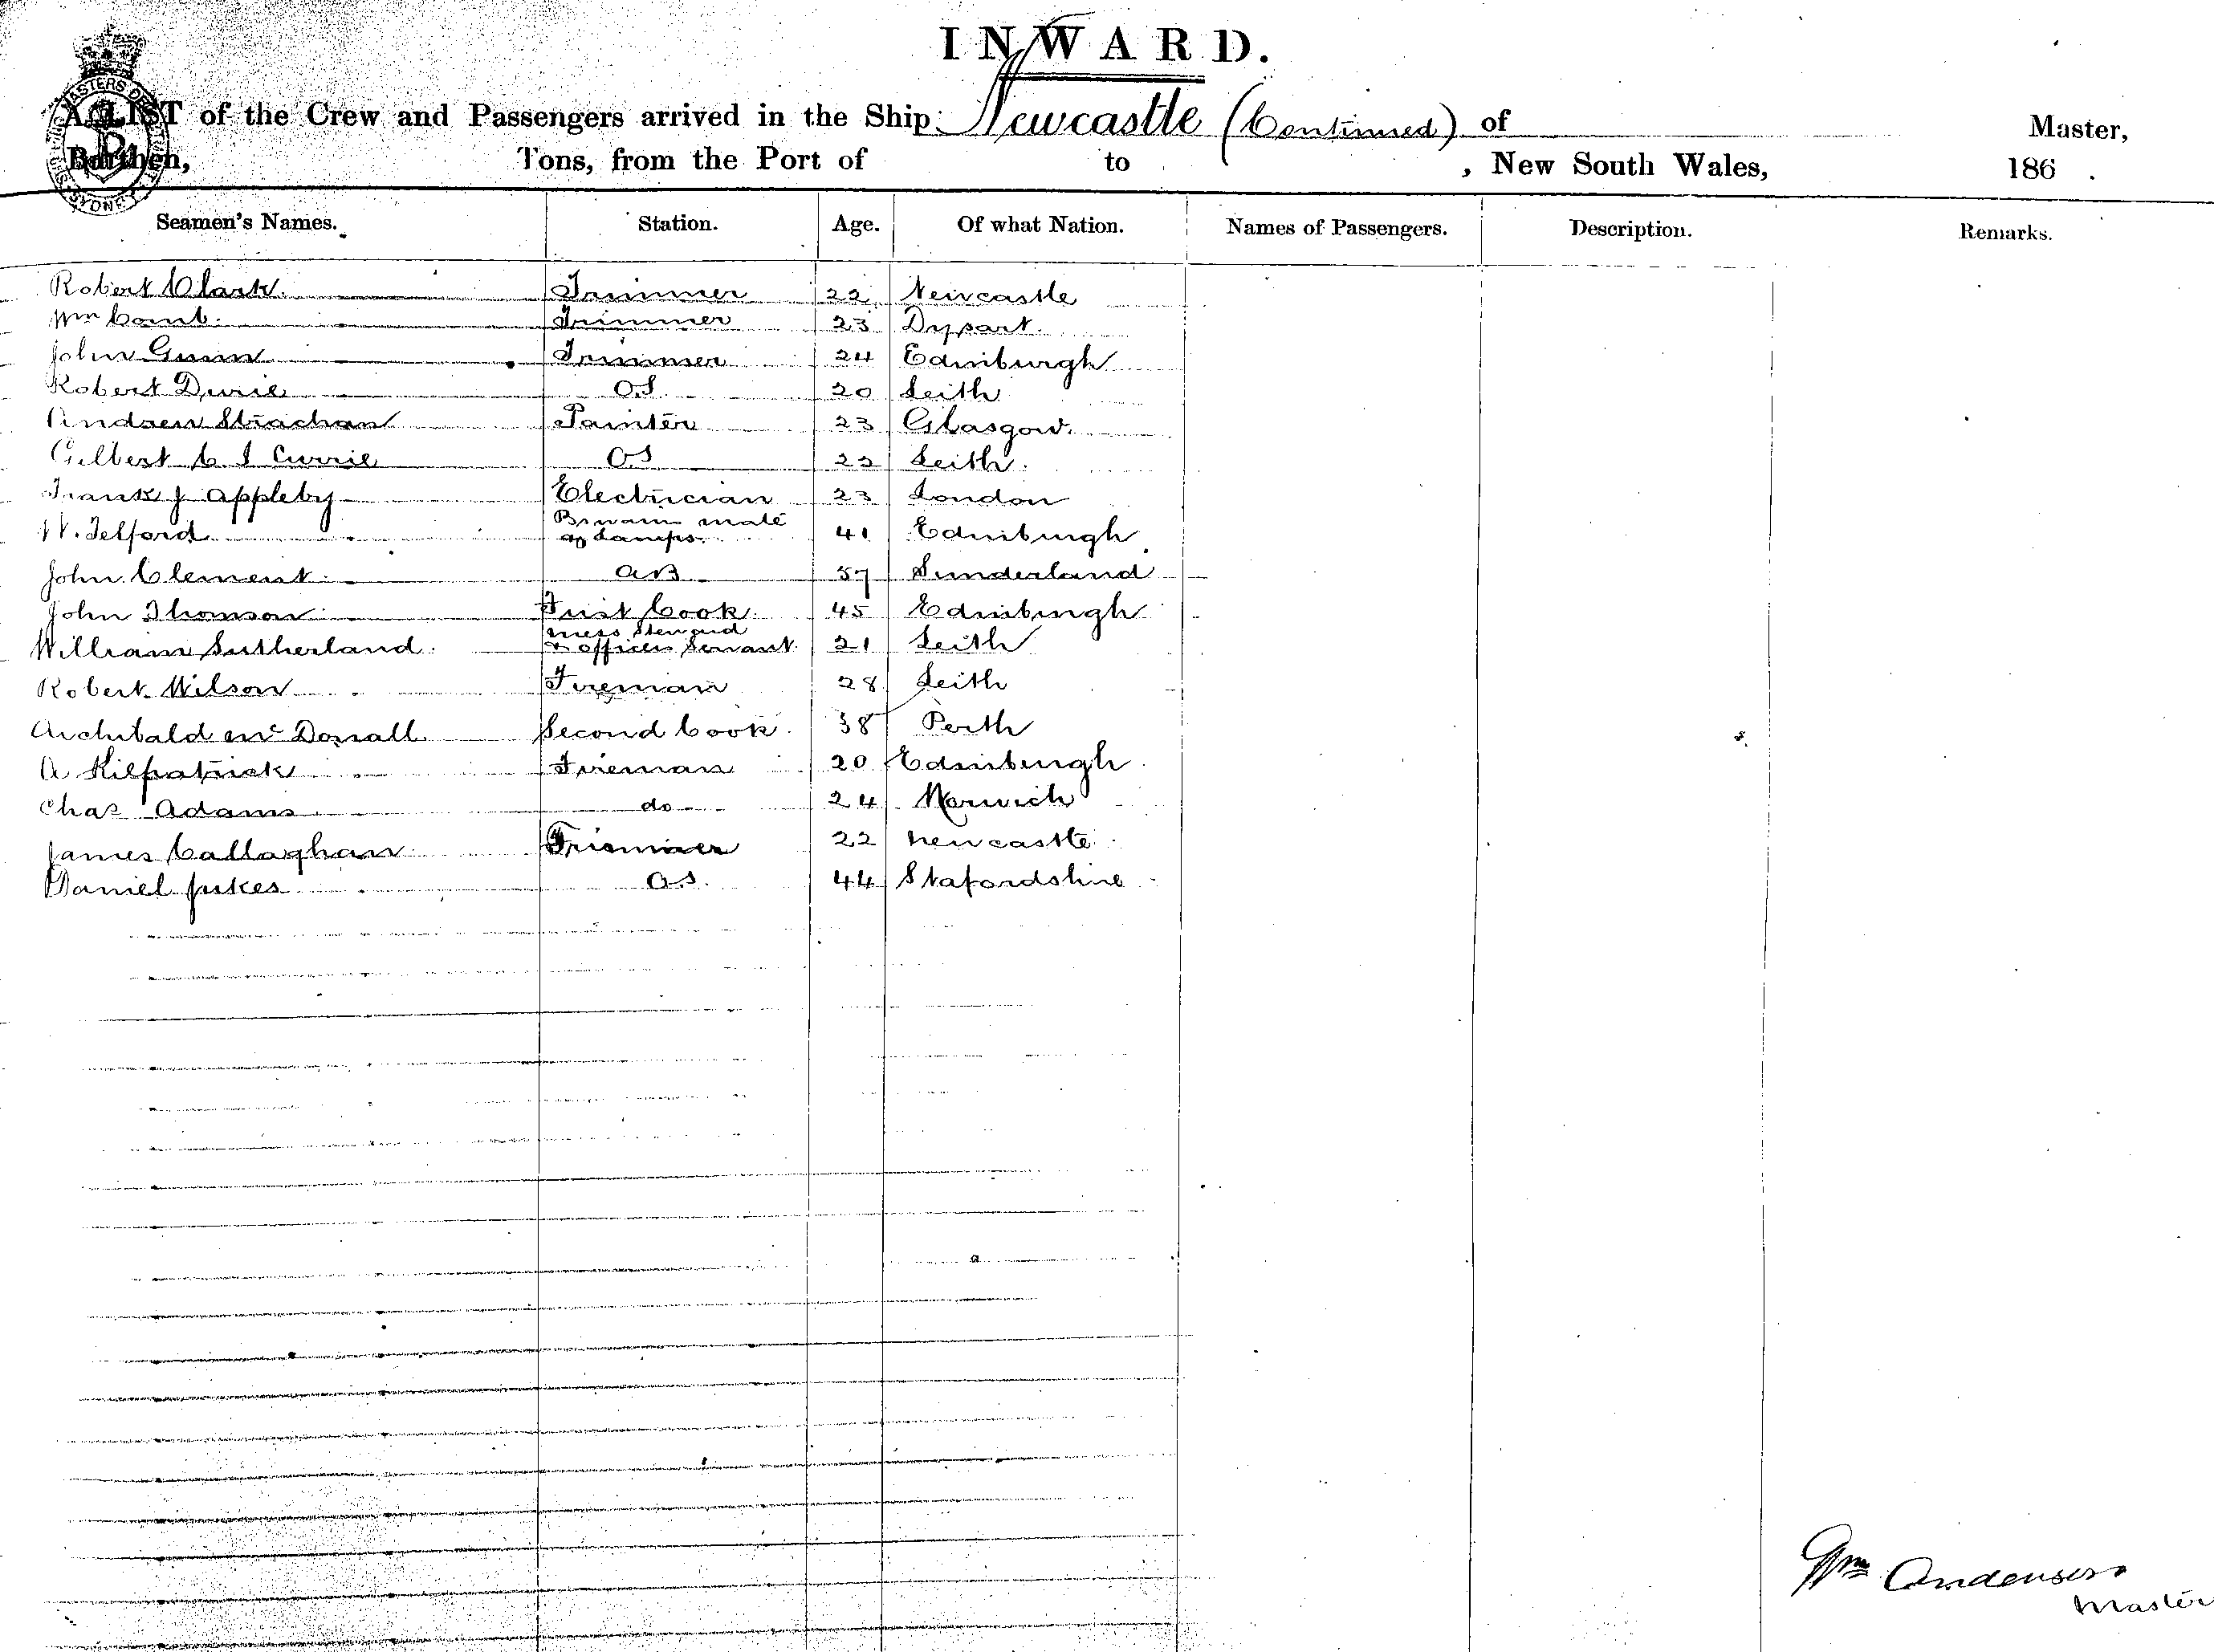 INWARD.
A LIST of the Crew and Passengers arrived in the Ship Newcastle (Continued) of Master,
Burthen, Tons, from the Port of to , New South Wales, 186 .
Seamen's Names. Station. Age. Of what Nation. Names of Passengers. Description. Remarks.
Robert Clark. Trimmer 22 Newcastle
Wm Comb. Trimmer 23 Dysart.
John Gunn Trimmer 24 Edinburgh
Robert Durie O.S. 20 Leith
Andrew Strachan Painter 23 Glasgow.
Gilbert C. S Currie OS 22 Leith.
Frank J Appleby Electrician 23 London
W. Telford Bswain mate
& Lamps. 41 Edinburgh
John Clement AB 57 Sunderland
John Thomson First Cook. 45 Edinburgh
William Sutherland. Mess Steward
& officers Servant. 21 Leith
Robert Wilson Fireman 28 Leith
Archibald Mc Donall Second Cook. 38 Perth
A Kilpatrick Fireman 20 Edinburgh
Chas Adams do 24 Norwich
James Callaghan Trimmer 22 Newcastle
Daniel Jukes 44 Stafordshire
Wm Anderson
Master